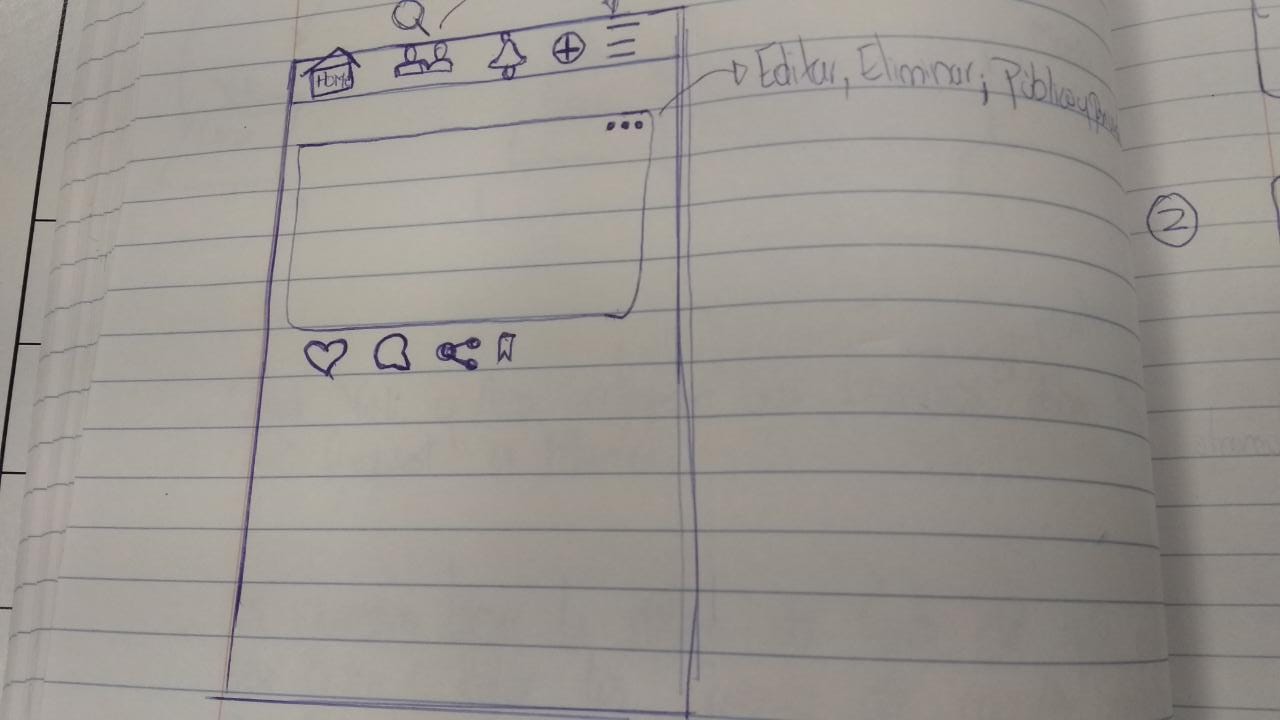 HOME
Editar, Eliminar; Públicay
2